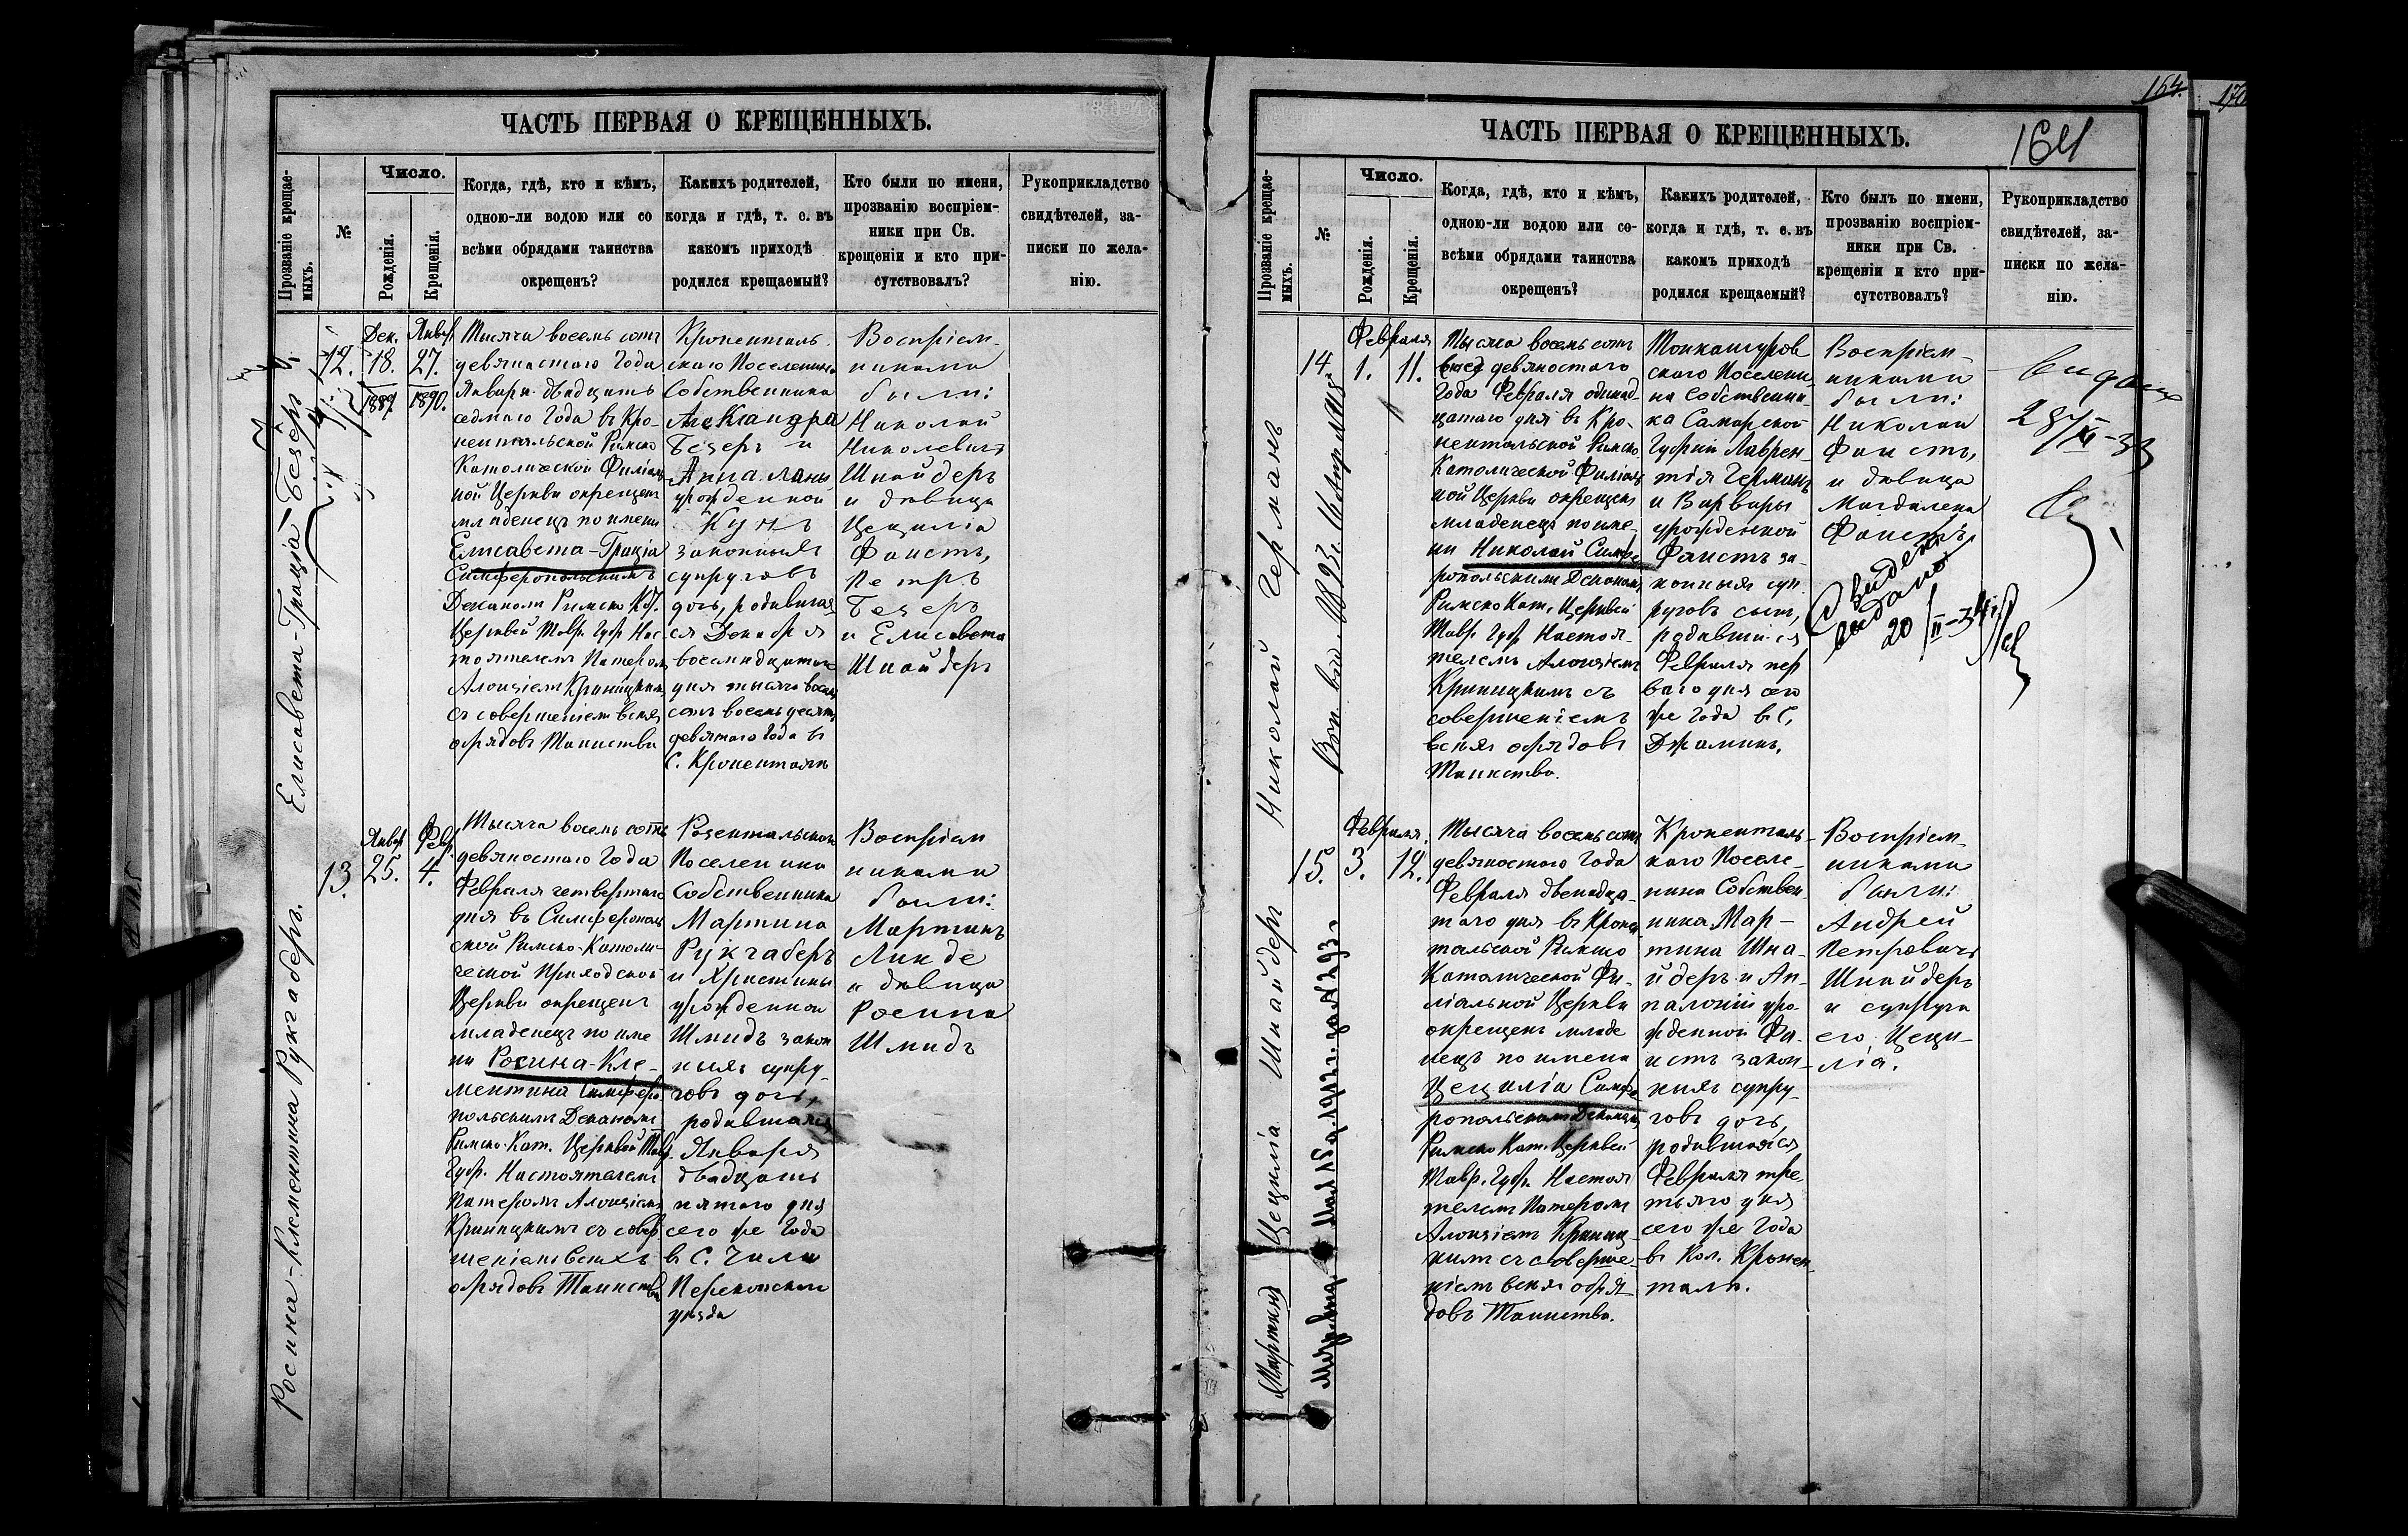 ЧАСТЬ ПЕРВАЯ О КРЕЩЕННЫХЪ.
Прозваніе крещае-
мыхъ.
№
Число.
Рожденія.
Крещенія.
Когда, гдѣ, кто и кѣмъ,
одною-ли водою или со
всѣми обрядами таинства
окрещенъ?
Какихъ родителей,
когда и гдѣ, т. е. въ
какомъ приходѣ
родился крещаемый?
Кто были по имени,
прозванію воспріем-
ники при Св.
крещеніи и кто при-
сутствовалъ?
Рукоприкладство
свидѣтелей, за-
писки по жела-
нію.
Елисавета-Грація Бецеръ
12.
Дек.
18.
1889
Январ
27.
1890.
Тысяча восемь сотъ
девяностаго года
Января двадцать
седмаго года въ Кро-
нентальской Римско
Католической Филіаль
ной Церкви окрещенъ
младенецъ по имени
Елисавета-Грація
Симферопольскимъ
Деканомъ Римско Кат.
Церквей Тавр. Губ. Нас-
тоятелемъ Патеромъ
Алоизіемъ Криницкимъ
съ совершеніемъ всѣхъ
обрядовъ Таинства
Кроненталь-
скаго Поселенина
Собственника
Александра
Бецеръ и
Анна-Маны
урожденной
Кунъ
законныхъ
супруговъ
дочь, родившая
ся Декабря
восемнадцатаго
дня тысяча восемь
сотъ восемьдесятъ
девятаго года въ
С. Кроненталь
Воспріем-
никами
были:
Николай
Николевичъ
Шнайдеръ
и дѣвица
Цецилія
Фаистъ,
Петръ
Бецеръ
и Елисавета
Шнайдеръ
Росина-Клементина Рукгаберъ.
13.
Январ
25.
Фев.
4.
Тысяча восемь сотъ
девяностаго года
Февраля четвертаго
дня въ Симферополь
ской Римско-Католи-
ческой Приходской
Церкви окрещенъ
младенецъ по име
ни Росина-Кле-
ментина Симферо
польскимъ Деканомъ
Римско-Кат. Церквей Тавр.
Губ. Настоятелемъ
Патеромъ Алоизіемъ
Криницкимъ съ совер
шеніемъ всѣхъ
обрядовъ Таинства
Розентальскаго
Поселенина
Собственника
Мартина
Рукгаберъ
и Христины
урожденной
Шмидъ закон
ныхъ супру-
говъ дочь,
родившаяся
Января
двадцать
пятаго дня
сего же года
въ С.
Перекопскаго
уѣзда
Воспріем
никами
были:
Мартинъ
Линде
и дѣвица
Росина
Шмидъ
164.
170
ЧАСТЬ ПЕРВАЯ О КРЕЩЕННЫХЪ.
164
Прозваніе крещае-
мыхъ.
№
Число.
Рожденія.
Крещенія.
Когда, гдѣ, кто и кѣмъ,
одною-ли водою или со-
всѣми обрядами таинства
окрещенъ?
Какихъ родителей,
когда и гдѣ, т. е. въ
какомъ приходѣ
родился крещаемый?
Кто былъ по имени,
прозванію воспріем-
ники при Св.
крещеніи и кто при-
сутствовалъ?
Рукоприкладство
свидѣтелей, за-
писки по жела-
нію.
Николай Германъ
14
Февраля
1.
11.
Тысяча восемь сотъ
девяностаго
года Февраля одинад
цатаго дня въ Кро-
нентальской Римско
Католической Филіаль
ной Церкви окрещенъ
младенецъ по име-
ни Николай Симфе
ропольскимъ Деканомъ
Римско Кат. Церквей
Тавр. Губ. Настоя-
телемъ Алоизіемъ
Криницкимъ съ
совершеніемъ
всѣхъ обрядовъ
Таинства.
скаго Поселени-
на Собственни-
ка Самарской
Губерніи Лаврен-
тія Германъ
и Варвары
урожденной
Фаистъ за-
конныхъ суп
руговъ сынъ,
родившійся
Февраля пер
ваго дня сего
же года въ С.
Джаминъ.
Воспріем-
никами
были:
Николай
Фаистъ,
и дѣвица
Магдалена
Фаистъ.
28/XI-33
выдано
20/II-34
Цецилія Шнайдеръ
15.
Февраля.
3.
12.
Тысяча восемь сотъ
девяностаго года
Февраля двенадца-
таго дня въ Кронен
тальской Римско
Католической Фи-
ліальной Церкви
окрещенъ младе
нецъ по имени
Цецилія Симфе
ропольскимъ Деканомъ
Римско Кат. Церквей
Тавр. Губ. Настоя
телемъ Патеромъ
Алоизіемъ Криниц-
кимъ съ соверше-
ніемъ всѣхъ обря
довъ Таинства.
Кроненталь-
скаго Поселе-
нина Собствен
ника Мар-
тина Шна-
йдеръ и Ап-
палоніи уро-
жденной Фа-
истъ закон-
ныхъ супру-
говъ дочь,
родившаяся
Февраля тре-
тьяго дня
сего же года
въ Кол. Кронен-
таль.
Воспріем-
никами
были:
Андрей
Петровичъ
Шнайдеръ
и супруга
его Цеци-
лія.